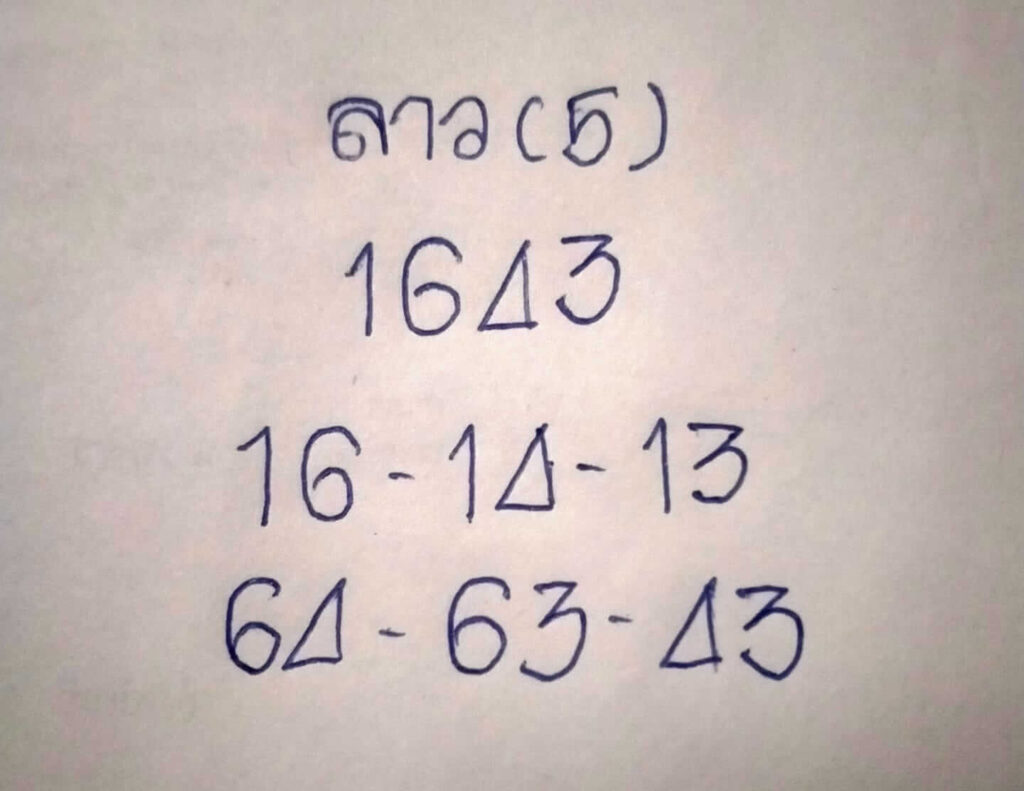 ลาว(5)
1643
16-14-13
64-63-43